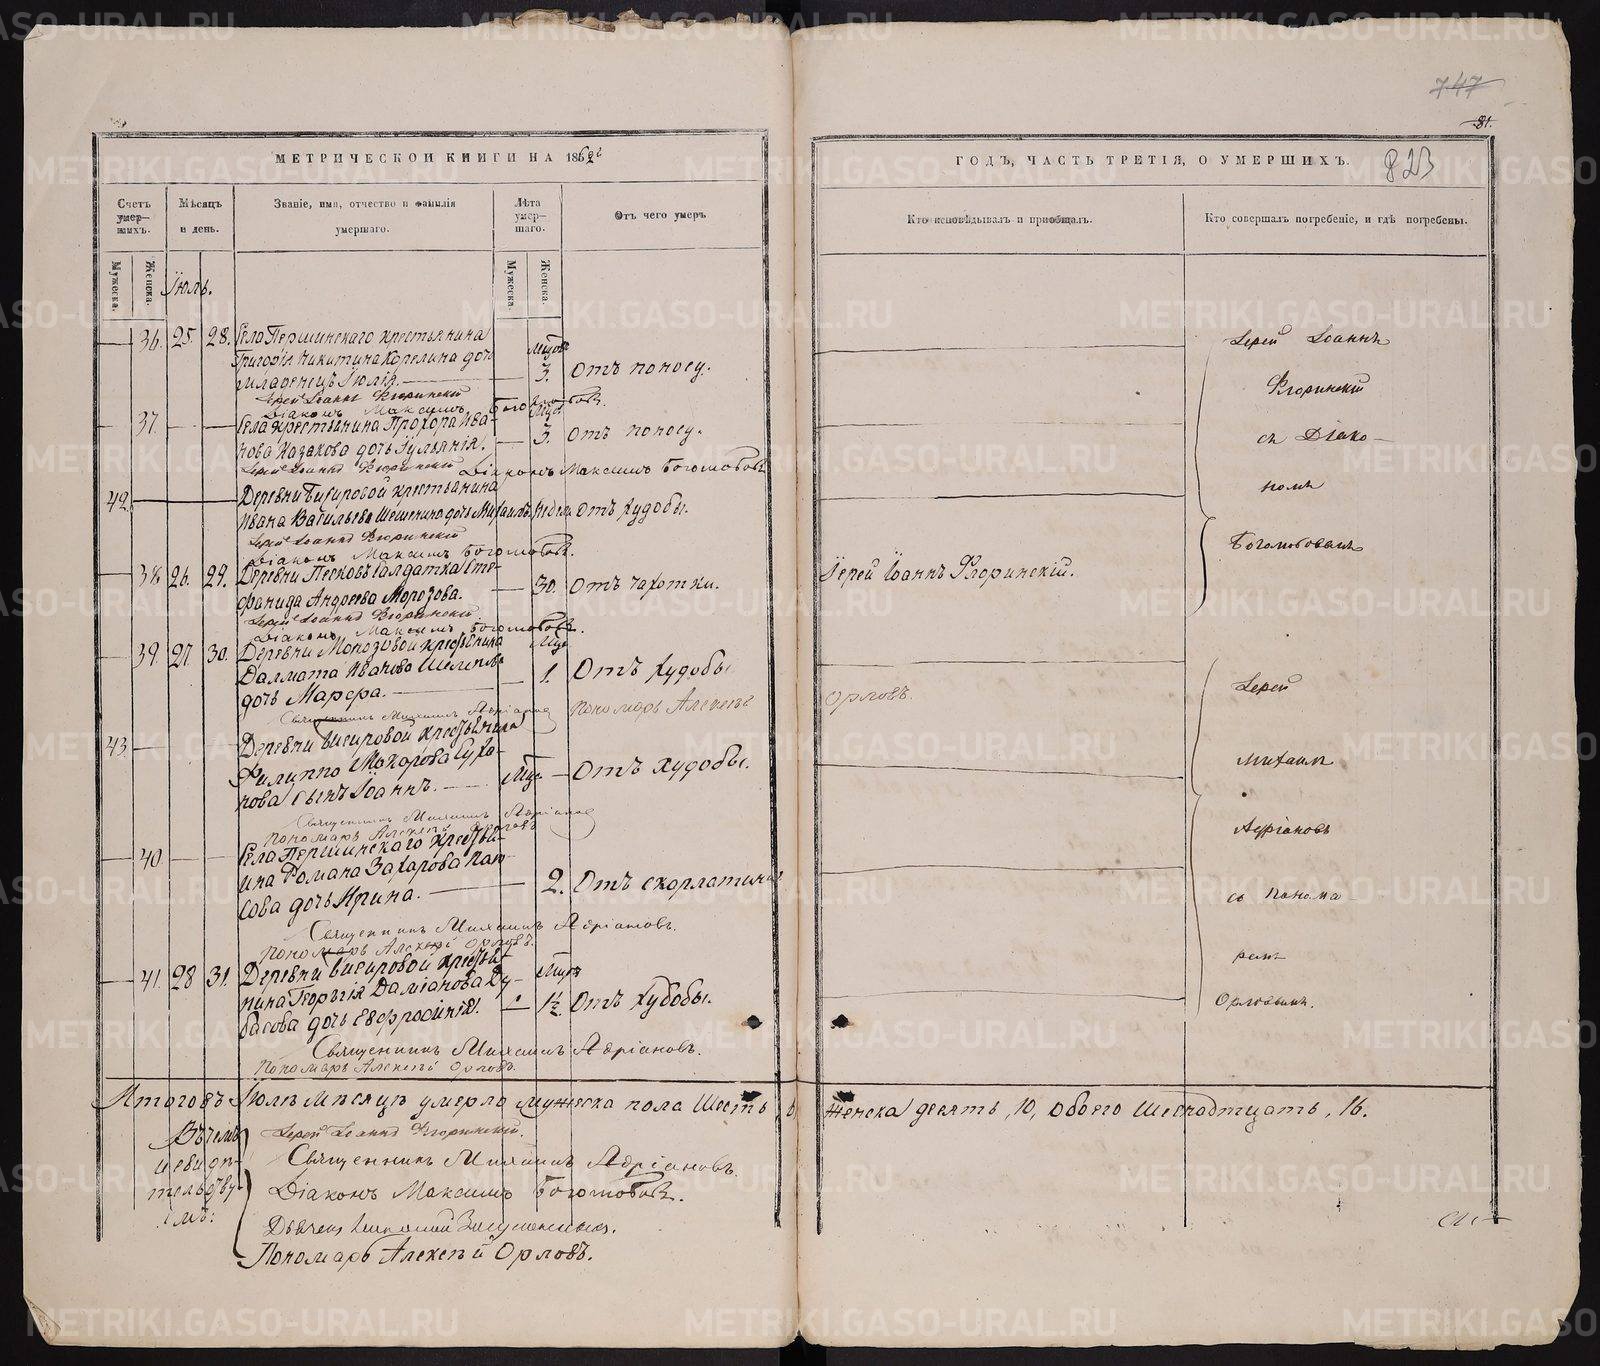 747
81.
МЕТРИЧЕСКОИ КНИГИ НА 1862й
ГОДЪ, ЧАСТЬ ТРЕТІЯ, О УМЕРШИХЪ.
823
Счетъ умер-шихъ.
Мѣсяцъ и день.
Званіе, имя, отчество и фамилія умершаго.
Лѣта умер-шаго.
Отъ чего умеръ
Кто исповѣдывалъ и пріобщалъ.
Кто совершалъ погребеніе, и гдѣ погребены.
Мужеска.
Женска.
Мужеска.
Женска.
Іюль.
36. 25. 28. Села Першинскаго крестьянина
Григорія Никитина Корелина дочь
младенецъ Юлія. 3. Отъ поносу.
Іерей Іоаннъ Флоринскій
Діаконъ Максимъ Боголюбовъ.
37. Села крестьянина Прохора Ива-
нова Казакова дочь Іульянія. 3. Отъ поносу.
Іерей Іоаннъ Флоринскій Діаконъ Максимъ Боголюбовъ
42. Деревни Бисировой крестьянина
Ивана Васильева дочь недели Отъ худобы.
Іерей Іоаннъ Флоринскій
Діаконъ Максимъ Боголюбовъ.
38. 26. 29. Деревни Песковъ Салдатка Сте-
фанида Андреева Морозова. 30. Отъ чахотки.
Іерей Іоаннъ Флоринскій.
Іерей Іоаннъ Флоринскій
Діаконъ Максимъ Боголюбовъ.
39. 27. 30. Деревни Морозовой крестьянина
Далмата Иванова
дочь Марфа. 1. Отъ худобы
Священникъ Михаилъ Адріановъ
Пономарь Алексѣй Орловъ.
43. Деревни Бисировой крестьянина
Филиппа Макарова Суха-
нова сынъ Іоаннъ. Отъ худобы.
Священникъ Михаилъ Адріановъ
Пономарь Алексѣй Орловъ
40. Села Першинскаго крестья-
нина Романа Захарова
сова дочь Ирина. 2. Отъ скорлатины
Священникъ Михаилъ Адріановъ.
Пономарь Алексѣй Орловъ.
41. 28 31. Деревни Бисировой крестья-
нина Георгія Даміанова Ду-
басова дочь Евфросинія. 1½ Отъ худобы.
Священникъ Михаилъ Адріановъ.
Пономарь Алексѣй Орловъ.
Іерей Іоаннъ
Флоринскій
съ Діако-
номъ
Боголюбовымъ
Іерей
Михаилъ
Адріановъ
съ Понома
ремъ
Орловымъ.
Итого въ Іюлѣ мѣсяцѣ умерло мужеска пола Шесть, 6 Женска десять, 10, обоего Шеснадтцать, 16.
Въ чемъ
и свидѣ-
тельству-
емъ:
Іерей Іоаннъ Флоринскій.
Священникъ Михаилъ Адріановъ.
Діаконъ Максимъ Боголюбовъ.
Пономарь Алексѣй Орловъ.
METRIKI.GASO-URAL.RU